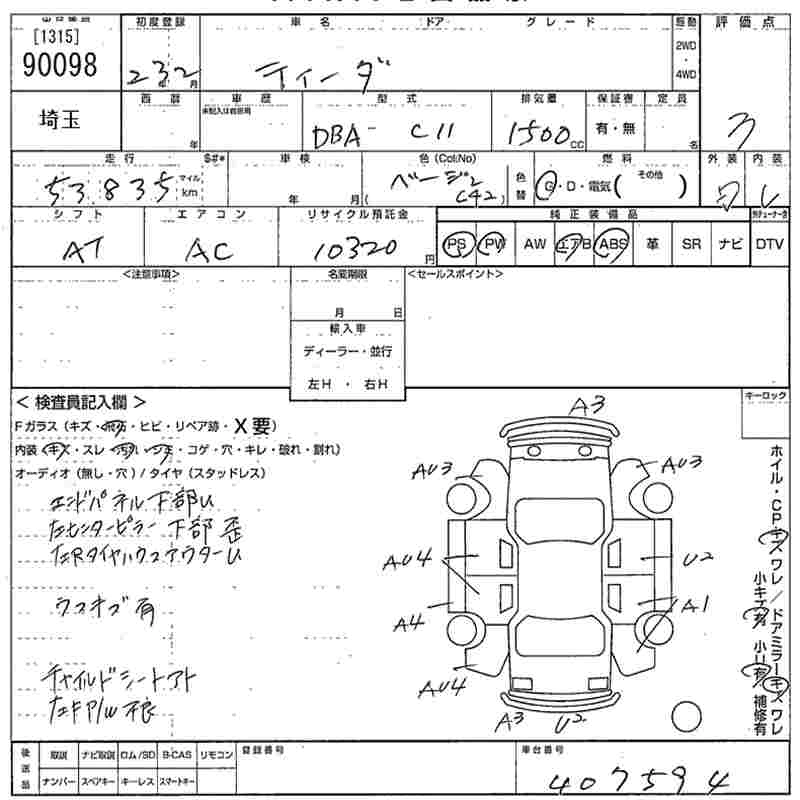 [1315]
90098
初度登録
車名
ドア
グレード
駆動
評価点
232
年 月
ティーダ
2WD
・
4WD
3
埼玉
西暦
年
車歴
未記入は自家用
型式
DBA- C11
排気量
1500 CC
保証書
有・無
定員
名
走行
$#*
53,835
マイル
km
車検
年 月
色(Col:No)
ベージュ
( C42 )
色替
燃料
G・D・電気( その他 )
外装
内装
シフト
エアコン
リサイクル預託金
純正装備品
AT
AC
10320 円
PS
PW
AW
エアB
ABS
革
SR
ナビ
DTV
<注意事項>
名変期限
<セールスポイント>
月 日
輸入車
ディーラー・並行
左H ・ 右H
キーロック
< 検査員記入欄 >
Fガラス(キズ・飛石・ヒビ・リペア跡・X要)
内装(キズ・スレ・汚れ・シミ・コゲ・穴・キレ・破れ・割れ)
オーディオ(無し・穴)/タイヤ(スタッドレス)
エンドパネル下部U
左センターピラー下部歪
左RタイヤハウスアウターU
ウスキズ有
チャイルドシートアト
A3
AU3
AU3
AU4
U2
A4
A1
AU4
A3
U2
ホイル・CP・キズワレ/ドアミラーキズワレ
小キズ有 小U有 補修有
後送品
取説
ナビ取説
ロム/SD
B-CAS
リモコン
ナンバー
スペアキー
キーレス
スマートキー
登録番号
車台番号
407594